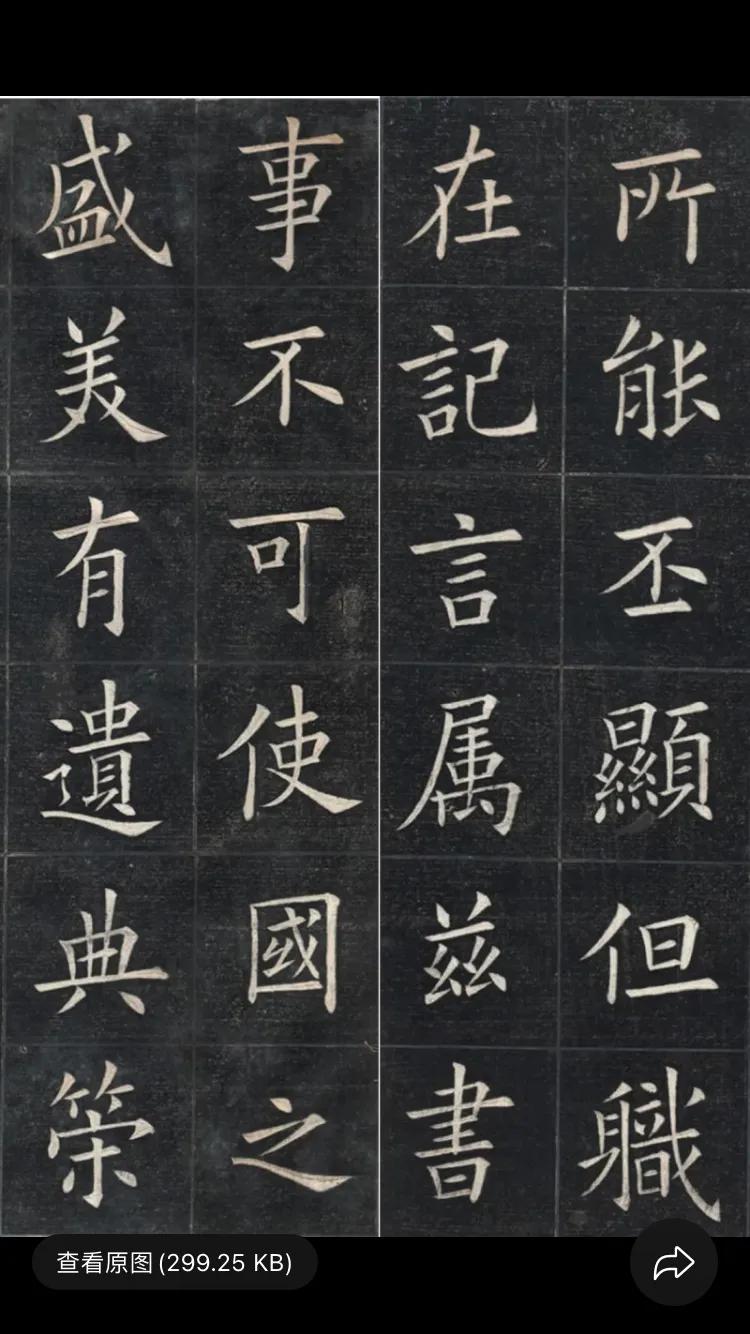 所能丕顯但職
在記言属兹書
事不可使國之
盛美有遺典策
查看原图(299.25 KB)